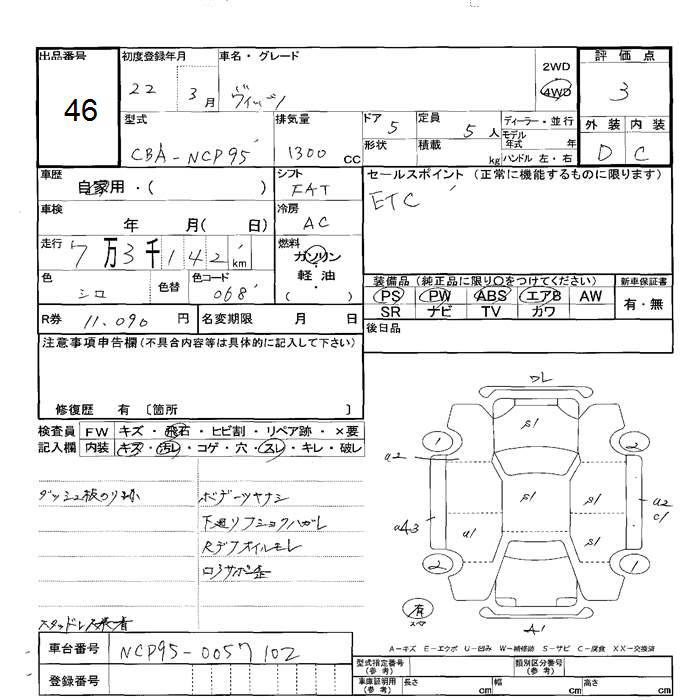 出品番号
46
初度登録年月
22 3月
車名・グレード
ヴィッツ
2WD
4WD
評価点
3
外装 内装
D C
型式
CBA-NCP95
排気量
1300 CC
ドア 5
定員 5人
形状
積載 kg
ディーラー・並行
モデル年式 年
ハンドル 左・右
車歴
自家用・( )
シフト
FAT
セールスポイント (正常に機能するものに限ります)
ETC
車検
年 月( 日)
冷房
AC
走行
7万3千142km
燃料
ガソリン
・
軽油
( )
色
シロ
色替
色コード
068
装備品 (純正品に限り○をつけてください)
PS PW ABS エアB AW
SR ナビ TV カワ
新車保証書
有・無
R券 11.090 円
名変期限 月 日
後日品
注意事項申告欄(不具合内容等は具体的に記入して下さい)
修復歴 有 〔箇所 〕
検査員記入欄
FW キズ・飛石・ヒビ割・リペア跡・×要
内装 キズ・汚レ・コゲ・穴・スレ・キレ・破レ
ボデーツヤナシ
下廻リフショクハガレ
Rデフオイルモレ
スタッドレス
車台番号 NCP95-0057102
登録番号
ワレ
S1
1
2
U2
S1
S1
U2
C1
U43
U1
S1
2
1
有
スペア
A1
A-キズ E-エクボ U-凹み W-補修跡 S-サビ C-腐食 XX-交換済
型式指定番号(参考)
類別区分番号(参考)
車庫証明用(参考) 長さ cm 幅 cm 高さ cm